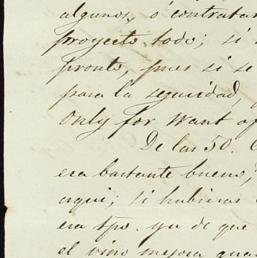 algunos, ó contratar
proyecto todo; si s
pronto, pues si se
para la seguridad,
Only for want of
De las 50. C
era bastante bueno,
aqui; si hubiera
era tpo. ya de que
el vino mejora quan